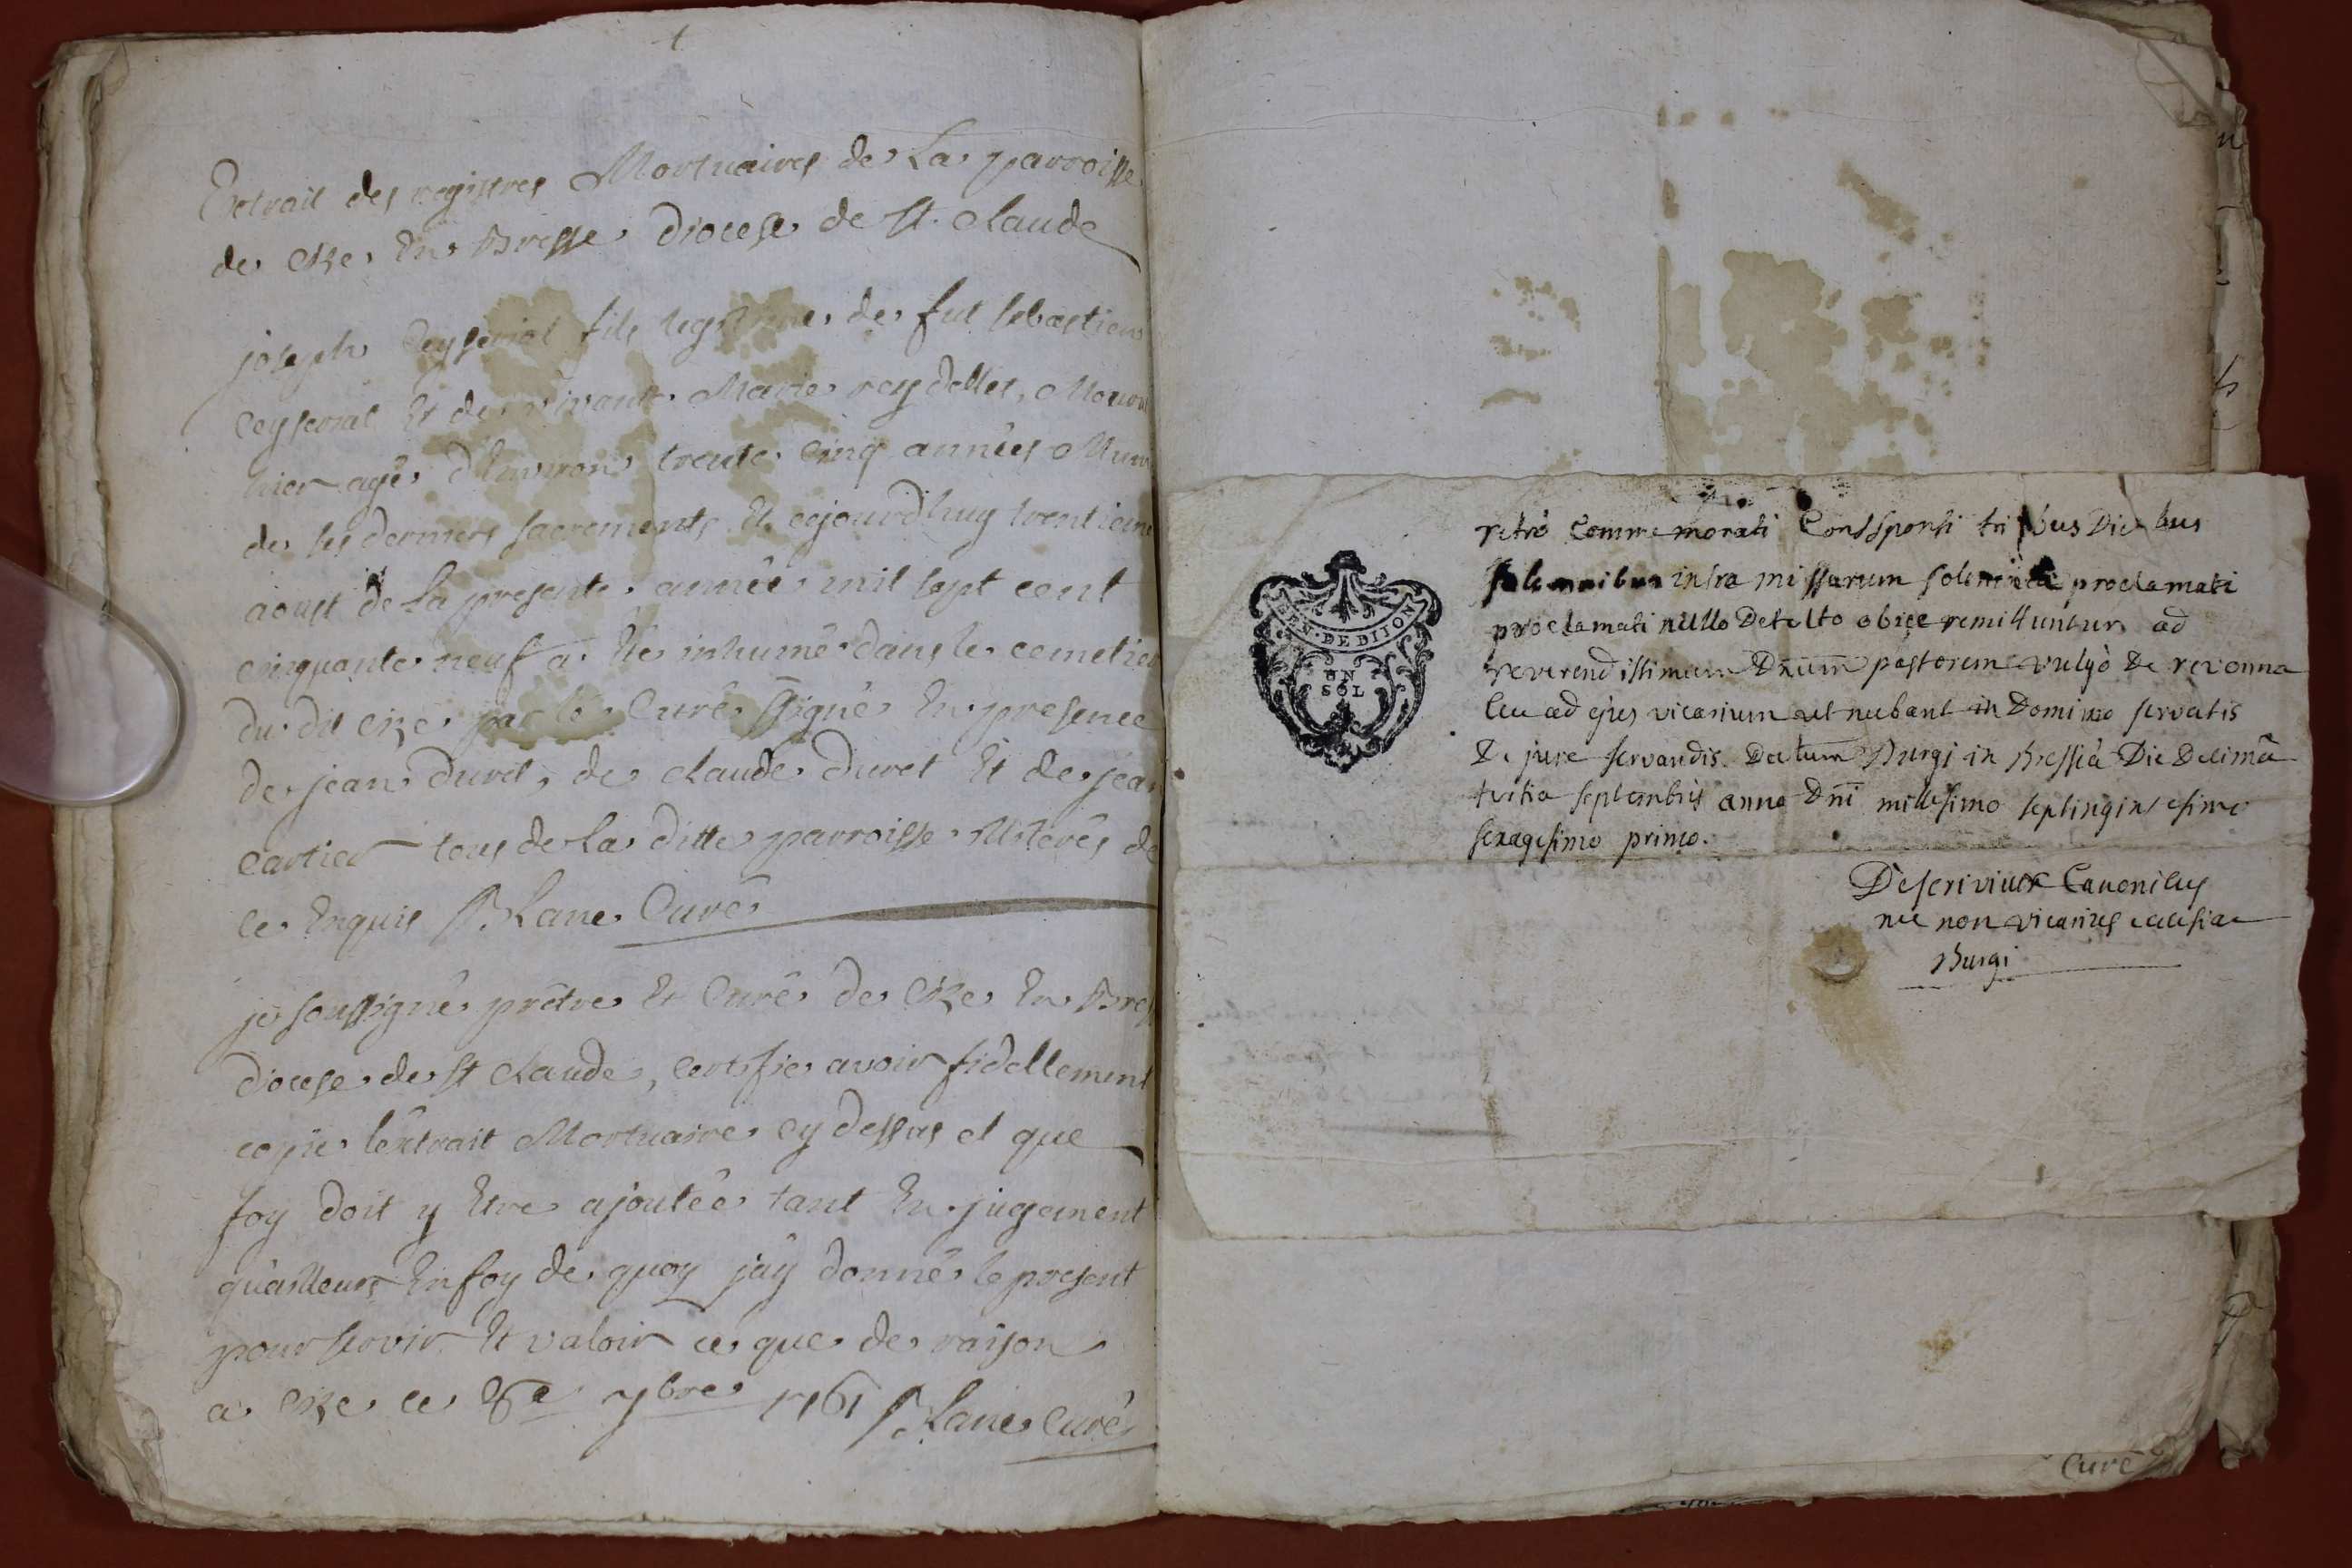 Extrait des registres Mortuaires de La parroisse
de Cize En Bresse Diocese de st. Claude
joseph Ceyseriat fils legitime de fut sebastien
Ceyseriat Et de vivante Marie reydellet, Mouru
hier agé d'Environ trente Cinq années Muni
de ses derniers sacrements Et cejourdhuy trentieme
aoust de la presente année mil sept cent
cinquante neuf a été inhumé dans le cemetier
du dit cize par le Curé ssigné En presence
de jean Duret, de claude Duret Et de jean
Cartier tous de La ditte parroisse illiterés de
ce Enquis BLanc Curé
je soussigné prêtre Et Curé de Cize En Bres
diocese de st Claude, certifie avoir fidellement
copié lextrait Mortuaire cy dessus et que
foy doit y Etre ajoutée tant En jugement
qu'ailleurs En foy de quoy j'ay donné le present
pour servir Et valoir ce que de raison
a Cize ce 8e 7bre 1761 BLanc Curé
retrò Commemorati Consponsi tribus Diebus
solemnibus intra missarum solemnia proclamati
proclamati nullo Detecto obice remittuntur ad
reverendissimum Dnum pastorem vulgò De revonna
ceu ad ejus vicarium ut nubant in Domino servatis
De jure servandis. Datum Burgi in Bressià Die Decimâ
tertia septembris anno Dni millesimo septingintesimo
sexagesimo primo.
GEN·DE DIJON
UN
SOL
Canonicus
nec non vicarius ecclesiae
Burgi
Curé